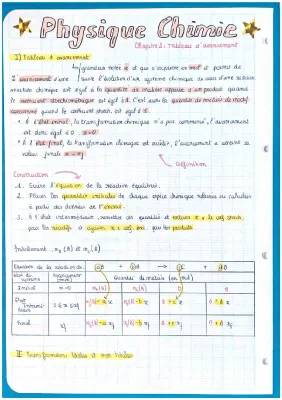 Physique Chimie
Chapitre 2 : Tableau d'avancement
I) Tableau d'avancement
grandeur notée x et qui s'exprime en mol et permet de
L'avancement d'une suivre l'évolution d'un système chimique au cours d'une
réaction chimique est égal à la quantité de matière apparue d'un produit quand
le nombre stoechiométrique est égal à 1. C'est aussi la quantité de matière de réactif
consommé quand le nombre est égal à 1.
• à l'état initial, la transformation chimique n'a pas commencé, l'avancement
est donc égal à 0 : x = 0
• à l'état final, la transformation chimique est arrêtée, l'avancement a atteint sa
valeur finale x = xf
définition
Construction
1. Écrire l'équation de la réaction équilibrée.
2. Placer les quantités initiales de chaque espèce chimique relevées ou calculées
à partir des données de l'énoncé.
3. À l'état intermédiaire,
pour les réactifs et ajouter pour les produits
Initialement : n₀(A) et n₀(B)
Équation de la réaction aA + bB → cC + dD
État du système Avancement (mol) Quantités de matière (en mol)
Initial 0 n₀(A) n₀(B) 0 0
État Intermédiaire 0 ≤ x ≤ xf n₀(A) - a x n₀(B) - b x 0 + c x 0 + d x
Final xf n₀(A) - a xf n₀(B) - b xf 0 + c xf 0 + d xf
II Transformations totales et non totales